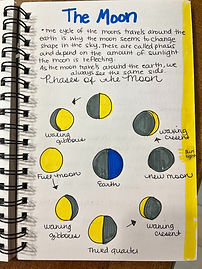 The Moon
• The cycle of the moons travels around the
earth is why the moon seems to change
shape in the sky. These are called phases
and depend on the amount of sunlight
the moon is reflecting.
As the moon travels around the earth, we
always see the same side.
Phases of the Moon
waxing
gibbous
waxing
cresent
Sun
light
Full moon
Earth
new moon
waning
gibboces
waning
cresent
Third quarter